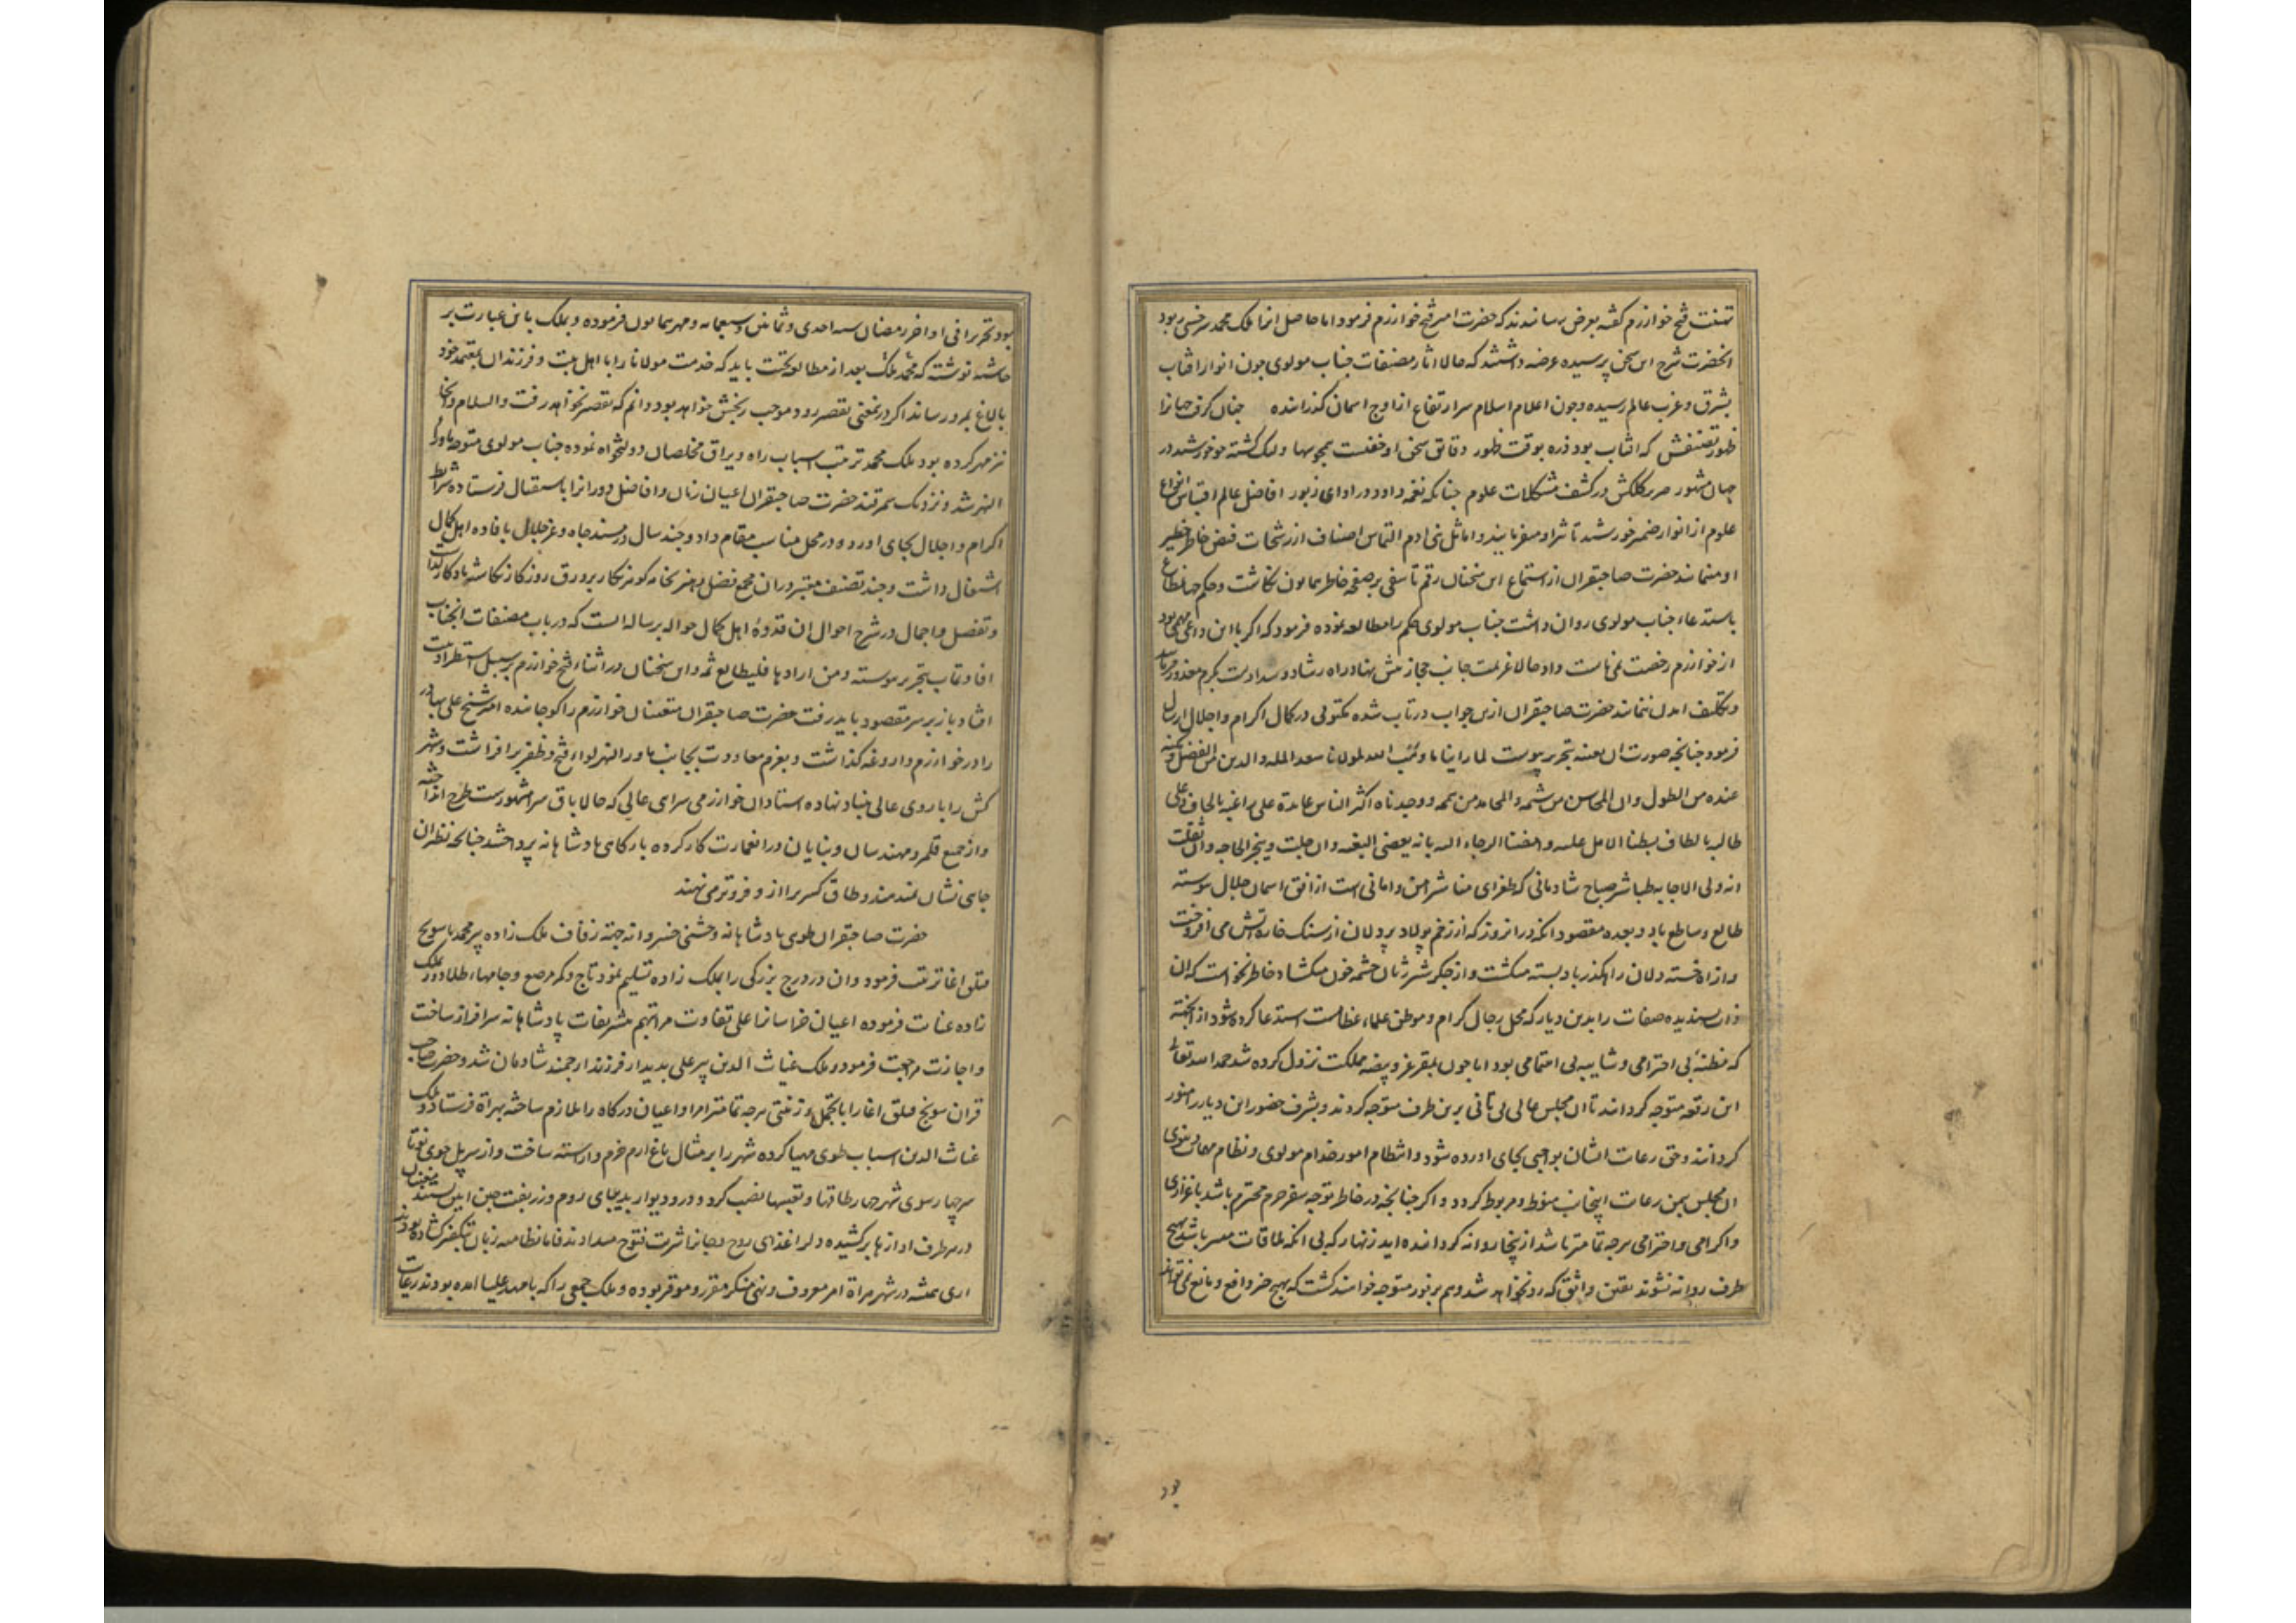 تهنیت فتح خوارزم کفته بعرض رسانیدند که حضرت امیر فتح خوارزم فرمود اما حاصل انرا ملک محمد سرخسی ربود
انحضرت شرح این سخن پرسیده عرضه داشتند که حالا اثار مصنفات جناب مولوی چون انوار افتاب
بشرق و غرب عالم رسیده و چون اعلام اسلام سر ارتفاع از اوج اسمان کذرانیده جنان کرفت جهانرا
ظهور تصنیفش که افتاب بود ذره بوقت ظهور دقائق سخن او خفیست همچو سها ولیک کشته جو خورشید در
جهان مشهور صریر کلکش در کشف مشکلات علوم جنانکه نغمه داود در ادای زبور افاضل عالم اقتباس انواع
علوم از انوار ضمیر خورشید تاثیر او میفرمایند و اماثل بنی ادم التماس اصناف از رشحات فیض خاطر خطیر
او مینمایند حضرت صاحبقران از استماع این سخنان رقم تاسفی بر صفحه خاطر همایون نکاشت و حکم جهانمطاع
باستدعاء جناب مولوی روان داشت جناب مولوی حکم را مطالعه نموده فرمود که اکر با این داعی مهمی بود
از خوارزم رخصت نمی‌بایست داد حالا عزیمت جانب حجاز پیش نهاد راه رشاد و سداد است بکرم معذور فرمایند
و تکلیف امدن ننمایند حضرت صاحبقران ازین جواب در تاب شده مکتوبی در کمال اکرام و اجلال ارسال
فرمود جنانجه صورت ان بعینه بتحریر پیوست لما راینا ما وهب الله لمولانا سعد المله والدین من الفضل و
عنده من الطول وان المحاسن من شیمه والمحامد من
طالبه بالطاف بسطنا الامل علیه و افضنا الرجاء الیه بانه یعضی البغیه وان جلت وینجز الحاجه وان ثقلت
انه ولی الاجابه طباشیر صباح شادمانی که طغرای مناشیر امن و امانی است از افق اسمان جلال پیوسته
طالع و ساطع باد و بعده مقصود انکه در انروز که از زخم پولاد پردلان از سنک خاره اتش می افروخت
و از اه خسته دلان راهکذر باد بسته میکشت و از جکر شیر ژیان جشمه خون میکشاد خاطر نخواست که ان
ذات پسندیده صفات را بدین دیار که محل رجال کرام و موطن علماء عظامست استدعا کرده شود از ان جهة
که مظنهٔ بی احترامی و شایبه بی اهتمامی بود اما چون بمقر عز و بیضه مملکت نزول کرده شد حمدا لله تعالی
این رقعه متوجه کردانید تا ان مجلس عالی بی تانی برین طرف متوجه کردند و بشرف حضور این دیار را منور
کردانند و حق رعایت ایشان بواجبی بجای اورده شود و انتظام امور خدام مولوی و نظام معاش بنوی
ان مجلس بیمن رعایت اینجانب منوط و مربوط کردد و اکر جنانجه در خاطر توجه سفر حرم محترم باشد باعزازی
و اکرامی و احترامی هر جه تمامتر باشد از ینجا روانه کردانیده اید زنهار که بی انکه ملاقات میسر باشد بهیج
طرف روانه نشوند یقین واثق که رد نخواهد شد و هم بر فور متوجه خواهند کشت که بهیج جیز دافع و مانع نمی تواند
بود
بود تحریرا فی اواخر رمضان سنه احدی و ثمانین و سبعمایه و مهر همایون فرموده و بملک باین عبارت بر
حاشیه نوشته که محمد ملک بعد از مطالعه تحیت باید که خدمت مولانا را با اهل بیت و فرزندان بمعتمد خود
بالاغ بمرو رساند اکر درینمعنی تقصیر رود موجب رنجش خواهد بود دانم که تقصیر نخواهد رفت والسلام و انجا
نیز مهر کرده بود ملک محمد ترتیب اسباب راه و یراق مخلصان دولتخواه نموده جناب مولوی متوجه ماوراء
النهر شد و نزدیک سمرقند حضرت صاحبقران اعیان زمان و افاضل دورانرا باستقبال فرستاده شرایط
اکرام و اجلال بجای اورد و در محل مناسب مقام داد و جند سال در مسند جاه و عز جلال بافاده اهل کمال
اشتغال داشت و جند تصنیف معتبر دران مجمع فضل و هنر بخامه کوهر نکار بر ورق روزکار نکاشته یادکار کذاشت
و تفصیل و اجمال در شرح احوال ان قدوهٔ اهل کمال حواله برساله ایست که در باب مصنفات انجناب
افادت‌ماب بتحریر پیوسته و من ارادها فلیطالع ثمه و این سخنان در اثناء فتح خوارزم بر سبیل استطراد ثبت
افتاد باز بر سر مقصود باید رفت حضرت صاحبقران متعینان خوارزم را کوجانیده امیر شیخ علی بهادر
را در خوارزم داروغه کذاشت و بعزم معاودت بجانب ماورالنهر لواء فتح و ظفر بر افراشت و شهر
کش را باروی عالی بنیاد نهاده استادان خوارزمی سرای عالی که حالا باق سرا مشهورست طرح انداخته
و از جمیع قلمرو مهندسان و بنایان دران عمارت کار کرده بارکاهی پادشاهانه پرداختند جنانجه نظیر ان
جای نشان نمیدهند و طاق کسری را از و فروتر می نهند
حضرت صاحبقران طوی پادشاهانه و جشنی خسروانه جهة زفاف ملک زاده پیر محمد با سونج
قتلق اغا ترتیب فرمود و ان در درج بزرکی را بملک زاده تسلیم نمود تاج و کمر مرصع و جامهاء طلادوز ملک
زاده عنایت فرموده اعیان خراسانرا علی تفاوت مراتبهم بتشریفات پادشاهانه سرافراز ساخت
و اجازت مراجعت فرمود و ملک غیاث الدین پیر علی بدیدار فرزند ارجمند شادمان شد و حضرت صاحب
قران سونج قتلق اغا را با تجمل و زینتی هرجه تمامتر امرا و اعیان درکاه را ملازم ساخته بهراة فرستاد و ملک
غیاث الدین اسباب طوی مهیا کرده شهر را بر مثال باغ ارم خرم و اراسته ساخت و از سر پل جوی نو تا
سر جهار سوی شهر جهار طاقها و تعبیها نصب کرد و در و دیوار بدیبای روم و زربفت جین ایین بستند مغنیان
در هر طرف اوازها برکشیده دلرا غذای روح و جانرا شربت فتوح میدادند فاما نظامیه زبان تکفیر کشاده بودند
اری همیشه در شهر هراة امر معروف و نهی منکر مقرر و موقر بوده و ملک جمعی را که با مهد علیا امده بودند رعایت